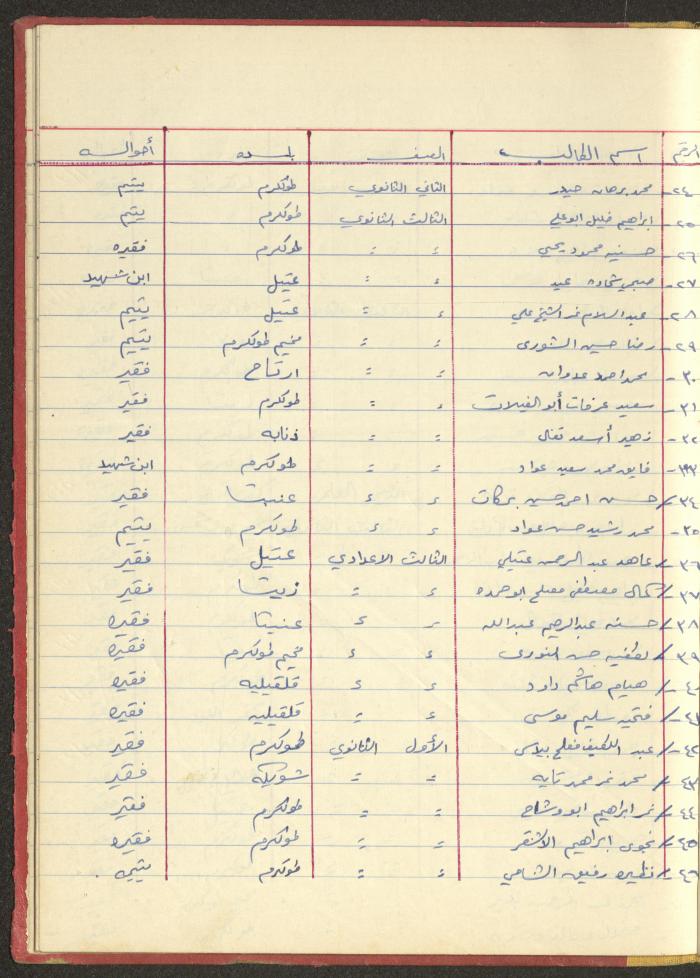 الرقم اسم الطالب الصف بلده أحواله
٢٤- محمد برهان حيدر الثاني الثانوي طولكرم يتيم
٢٥- ابراهيم خليل ابو علي الثالث الثانوي طولكرم يتيم
٢٦- حسنيه محمود يحيى = = طولكرم فقيره
٢٧- صبحي شحاده عيد = = عتيل ابن شهيد
٢٨- عبد السلام نمر الشيخ علي = = عتيل يتيم
٢٩- رضا حسين الشورى = = مخيم طولكرم يتيم
٣٠- محمد احمد عدوان = = ارتاح فقير
٣١- سعيد عرفات أبو الفيلات = = طولكرم فقير
٣٢- زهير أسعد = = ذنابه فقير
٣٣- فايق محمد سعيد عواد = = طولكرم ابن شهيد
٣٤- حسن احمد حسين بركات = = عنبتا فقير
٣٥- محمد رشيد حسن عواد = = طولكرم يتيم
٣٦- عاهد عبد الرحمن عتيلي الثالث الاعدادي عتيل فقير
٣٧- كمال مصطفى مفلح ابو حمده = = زيتا فقير
٣٨- حسنه عبد الرحيم عبد الله = = عنبتا فقيره
٣٩- لطفيه حسن النورى = = مخيم طولكرم فقيره
٤٠- هيام هاشم داود = = قلقيليه فقيره
٤١- فتحيه سليم موسى = = قلقيليه فقيره
٤٢- عبد اللطيف مفلح الأول الثانوي طولكرم فقير
٤٣- محمد نمر محمد تايه = = شويكه فقير
٤٤- نمر ابراهيم ابو وشاح = = طولكرم فقير
٤٥- نجوى ابراهيم الاشقر = = طولكرم فقيره
٤٦- نظيره رفيق الشامي = = طولكرم يتيمه